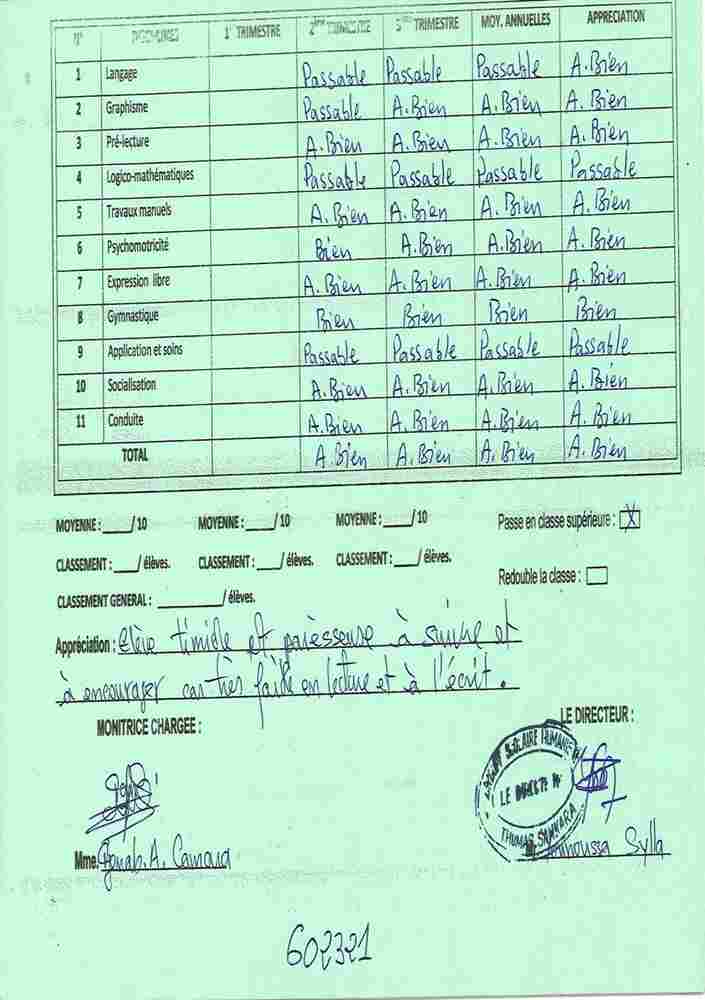 N° DISCIPLINES 1° TRIMESTRE 2ème TRIMESTRE 3ème TRIMESTRE MOY. ANNUELLES APPRECIATION
1 Langage Passable Passable Passable A.Bien
2 Graphisme Passable A.Bien A.Bien A.Bien
3 Pré-lecture A.Bien A.Bien A.Bien A.Bien
4 Logico-mathématiques Passable Passable Passable Passable
5 Travaux manuels A.Bien A.Bien A.Bien A.Bien
6 Psychomotricité Bien A.Bien A.Bien A.Bien
7 Expression libre A.Bien A.Bien A.Bien A.Bien
8 Gymnastique Bien Bien Bien Bien
9 Application et soins Passable Passable Passable Passable
10 Socialisation A.Bien A.Bien A.Bien A.Bien
11 Conduite A.Bien A.Bien A.Bien A.Bien
TOTAL A.Bien A.Bien A.Bien A.Bien
MOYENNE : ____/10 MOYENNE : ____/10 MOYENNE : ____/10 Passe en classe supérieure : X
CLASSEMENT : ____/ élèves. CLASSEMENT : ____/ élèves. CLASSEMENT : ____/ élèves.
Redouble la classe :
CLASSEMENT GENERAL : __________/ élèves.
Appréciation : élève timide et paresseuse à suivre et
à encourager car très faible en lecture et à l'écrit.
MONITRICE CHARGEE : LE DIRECTEUR :
SCOLAIRE HUMANIS
LE DIRECTEUR
THOMAS SANKARA
Mme. A. Camara Sylla
602321